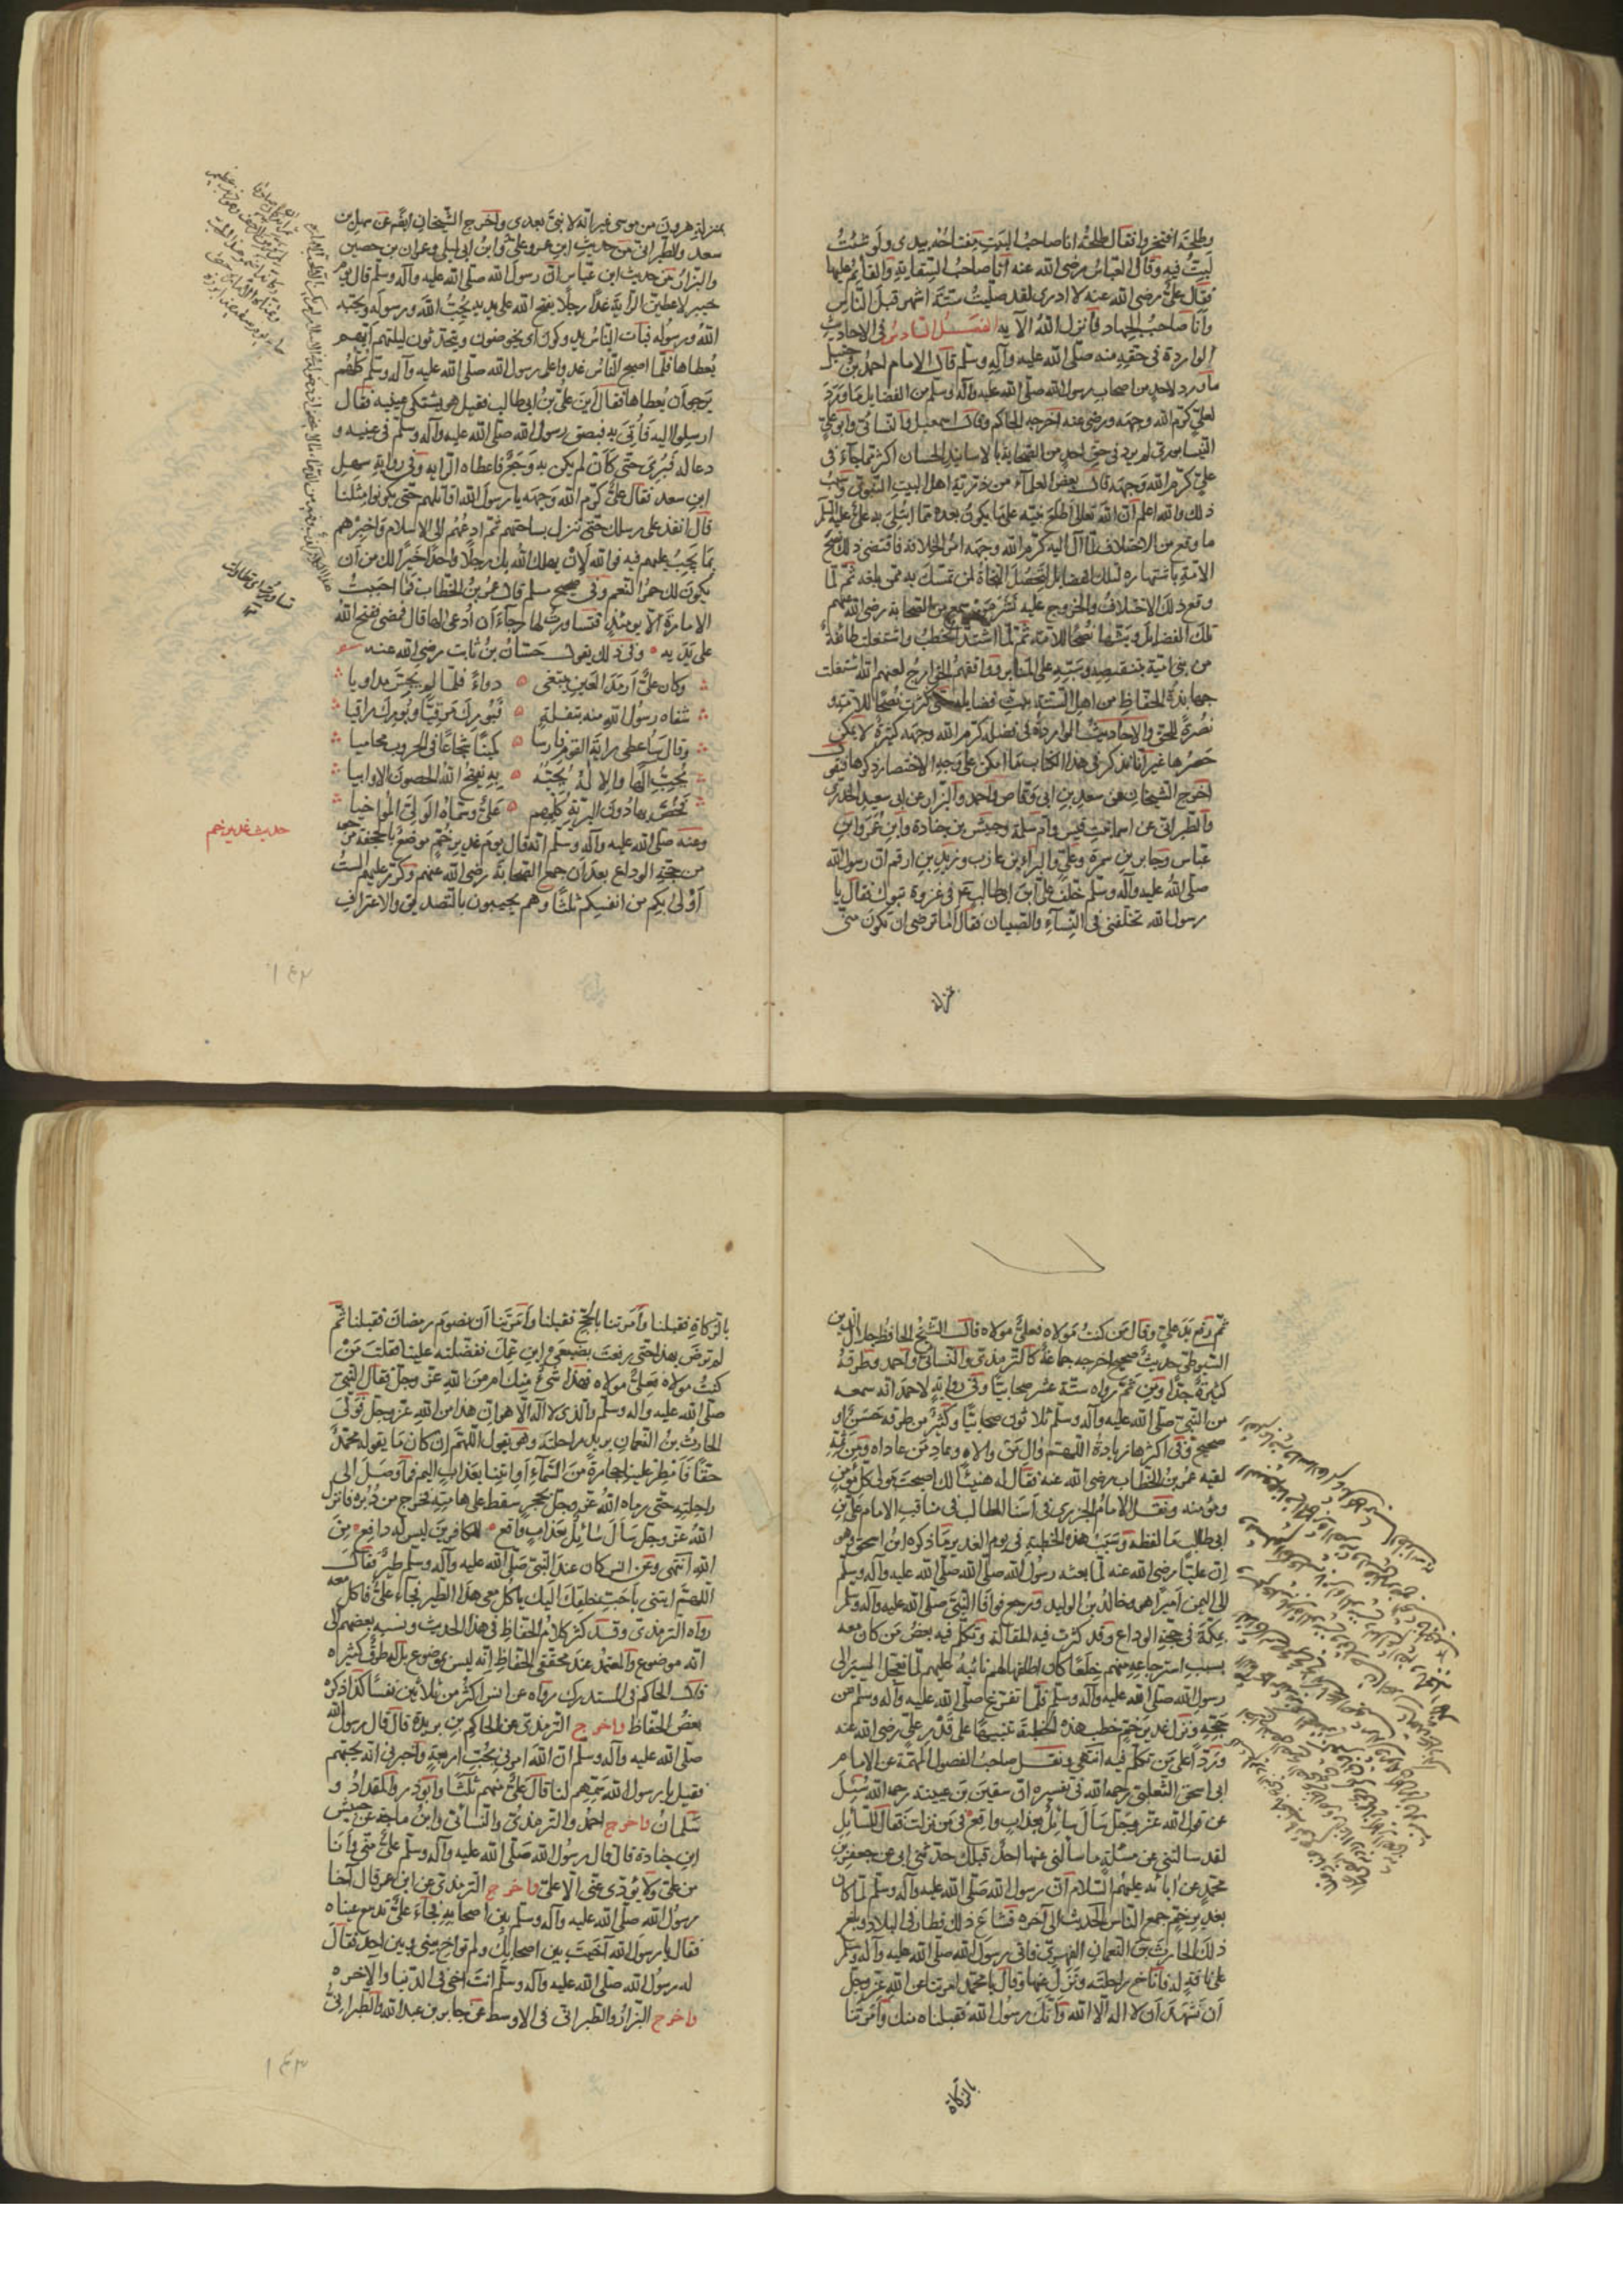 وطلحة افتخروا فقال طلحة انا صاحب البيت مفتاحه بيدى ولو شئت
لبت فيه وقال العباس رضى الله عنه انا صاحب السقاية والقائم عليها
فقال على رضى الله عنه لا ادرى لقد صليت ستة اشهر قبل الناس
وانا صاحب الجهاد فانزل الله الآية الفصل السادس فى الاحاديث
الواردة فى حقه منه صلى الله عليه وآله وسلم قال الامام احمد بن حنبل
ما ورد لاحد من اصحاب رسول الله صلى الله عليه وآله وسلم من الفضايل ما ورد
لعلى كرم الله وجهه ورضى عنه اخرجه الحاكم وقال اسمعيل والنسائى وابو على
النيسابورى لم يرد فى حق احد من الصحابة بالاسانيد الحسان اكثر مما جاء فى
على كرم الله وجهه قال بعض العلماء من ذرية اهل البيت النبوى وسبب
ذلك والله اعلم ان الله تعالى اطلع نبيه على ما يكون بعده مما ابتلى به على عليه السلم
ما وقع من الاختلاف لما آل اليه كرم الله وجهه امر الخلافة فاقتضى ذلك نصح
الامة باشتهاره لتلك الفضايل لتحصل النجاة لمن تمسك به ممن بلغه ثم لما
وقع ذلك الاختلاف والخروج عليه نشر من سمع من الصحابة رضى الله عنهم
تلك الفضايل وبثها نصحا للامة ثم لما اشتد الخطب واشتغلت طائفة
من بنى امية بتنقيصه وسبه على المنابر ووافقهم الخوارج لعنهم الله اشتغلت
جهابذة الحفاظ من اهل السنة ببث فضايله حتى كثرت نصحا للامة و
نصرة للحق والاحاديث الواردة فى فضله كرم الله وجهه كثيرة لا يمكن
حصرها غير انا نذكر فى هذا الكتاب ما امكن على وجه الاختصار ذكرها فنقول
اخرج الشيخان عن سعد بن ابى وقاص واحمد والبزار عن ابى سعيد الخدرى
والطبرانى عن اسما بنت قيس وام سلمة وحبش بن جنادة وابن عمر وابن
عباس وجابر بن سمرة وعلى والبراء بن عازب وزيد بن ارقم ان رسول الله
صلى الله عليه وآله وسلم خلف على ابن ابى طالب فى غزوة تبوك فقال يا
رسول الله تخلفنى فى النساء والصبيان فقال اما ترضى ان تكون منى
بمنزلة
بمنزلة هرون من موسى غير انه لا نبى بعدى واخرج الشيخان ايضا عن سهل بن
سعد والطبرانى من حديث ابن عمر وعلى وابن ابى ليلى وعمران بن حصين
والبزار من حديث ابن عباس ان رسول الله صلى الله عليه وآله وسلم قال يوم
خيبر لاعطين الراية غدا رجلا يفتح الله على يديه يحب الله ورسوله ويحبه
الله ورسوله فبات الناس يدوكون اى يخوضون ويتحدثون ليلتهم ايهم
يعطاها فلما اصبح الناس غدوا على رسول الله صلى الله عليه وآله وسلم كلهم
يرجى ان يعطاها فقال اين على بن ابى طالب فقيل هو يشتكى عينيه فقال
ارسلوا اليه فاتى به فبصق رسول الله صلى الله عليه وآله وسلم فى عينيه و
دعا له فبرئ حتى كان لم يكن به وجع فاعطاه الراية وفى رواية سهل
ابن سعد فقال على كرم الله وجهه يا رسول الله اقاتلهم حتى يكونوا مثلنا
قال انفذ على رسلك حتى تنزل بساحتهم ثم ادعهم الى الاسلام واخبرهم
بما يجب عليهم فيه فوالله لان يهدى الله بك رجلا واحدا خيرا لك من ان
يكون لك حمر النعم وفى صحيح مسلم قال عمر بن الخطاب فما احببت
الامارة الا يومئذ فتساورت لها رجاء ان ادعى لها قال فمضى ففتح الله
على يديه وفى ذلك يقول حسان بن ثابت رضى الله عنه
وكان على ارمد العين يبتغى دواء فلما لم يحس مداويا
شفاه رسول الله منه بتفلة فبورك مرقيا وبورك راقيا
وقال ساعطى راية القوم فارسا كميا شجاعا فى الحروب محاميا
يحب الها والاله يحبه به يفتح الله الحصون الاوابيا
فخص بها دون البرية كلهم على وسماه الولى المواخيا
وعنه صلى الله عليه وآله وسلم انه قال يوم غدير خم موضع بالجحفة مرجعه
من حجة الوداع بعد ان جمع الصحابة رضى الله عنهم وكرر عليهم الست
اولى بكم من انفسكم ثلثا وهم يجيبون بالتصديق والاعتراف
حديث غدير خم
١٤٢
ثم رفع يد على وقال من كنت مولاه فعلى مولاه قال الشيخ الحافظ جلال الدين
السيوطى حديث صحيح اخرجه جماعة كالترمذى والنسائى واحمد وطرقه
كثيرة جدا ومن ثم رواه ستة عشر صحابيا وفى رواية لاحمد انه سمعه
من النبى صلى الله عليه وآله وسلم ثلاثون صحابيا وكثير من طرقه حسن او
صحيح وفى اكثرها زيادة اللهم وال من والاه وعاد من عاداه ومن ثمة
لقيه عمر بن الخطاب رضى الله عنه فقال له هنيئا لك اصبحت مولى كل مؤمن
ومؤمنة ونقل الامام الجزرى فى اسنا المطالب فى مناقب الامام على بن
ابى طالب ما لفظه وسبب هذه الخطبة فى يوم الغدير ما ذكره ابن اسحق وهو
ان عليا رضى الله عنه لما بعثه رسول الله صلى الله عليه وآله وسلم
الى اليمن اميرا هو وخالد بن الوليد ورجع فوافا النبى صلى الله عليه وآله وسلم
بمكة فى حجة الوداع وقد كثرت فيه المقالة وتكلم فيه بعض من كان معه
بسبب استرجاعه منهم خلعا كان اطلقها لهم نائبه عليهم لما تعجل المسير الى
رسول الله صلى الله عليه وآله وسلم فلما تفرغ صلى الله عليه وآله وسلم من
حجته ونزل غدير خم خطب هذه الخطبة تنبيها على قدر على رضى الله عنه
وردا على من تكلم فيه انتهى ونقل صاحب الفصول المهمة عن الامام
ابى اسحق الثعلبى رحمه الله فى تفسيره ان سفين بن عيينة رحمه الله سئل
عن قول الله عز وجل سال سائل بعذاب واقع فى من نزلت فقال للسائل
لقد سالتنى عن مسئلة ما سالنى عنها احد قبلك حدثنى ابى عن جعفر بن
محمد عن ابائه عليهم السلام ان رسول الله صلى الله عليه وآله وسلم لما كان
بغدير خم جمع الناس الحديث الى آخره فشاع ذلك فطار فى البلاد وبلغ
ذلك الحارث بن النعمان الفهرى فاتى رسول الله صلى الله عليه وآله وسلم
على ناقة له فاناخ راحلته ونزل عنها وقال يا محمد امرتنا عن الله عز وجل
ان نشهد ان لا اله الا الله وانك رسول الله فقبلناه منك وامرتنا
بالزكاة
بالزكاة فقبلنا وامرتنا بالحج فقبلنا وامرتنا ان نصوم رمضان فقبلنا ثم
لم ترض بهذا حتى رفعت بضبعى ابن عمك تفضلته علينا فقلت من
كنت مولاه فعلى مولاه فهذا شىء منك ام من الله عز وجل فقال النبى
صلى الله عليه وآله وسلم والذى لا اله الا هو ان هذا من الله عز وجل فولى
الحارث بن النعمان يريد راحلته وهو يقول اللهم ان كان ما يقوله محمد
حقا فامطر علينا حجارة من السماء او ائتنا بعذاب اليم فما وصل الى
راحلته حتى رماه الله عز وجل بحجر سقط على هامته فخرج من دبره فانزل
الله عز وجل سال سائل بعذاب واقع للكافرين ليس له دافع من
الله انتهى وعن انس كان عند النبى صلى الله عليه وآله وسلم طير فقال
اللهم ايتنى باحب خلقك اليك ياكل معى هذا الطير فجاء على فاكل معه
رواه الترمذى وقد كثر كلام الحفاظ فى هذا الحديث ونسبه بعضهم الى
انه موضوع والمعتمد عند محققى الحفاظ انه ليس بموضوع بل له طرق كثيرة
قال الحاكم فى المستدرك رواه عن انس اكثر من ثلاثين نفسا كذا ذكره
بعض الحفاظ واخرج الترمذى عن الحاكم بن بريدة قال قال رسول الله
صلى الله عليه وآله وسلم ان الله امرنى بحب اربعة واخبرنى انه يحبهم
فقيل يا رسول الله سمهم لنا قال على منهم ثلثا وابوذر والمقداد و
سلمان واخرج احمد والترمذى والنسائى وابن ماجة عن حبش
ابن جنادة قال قال رسول الله صلى الله عليه وآله وسلم على منى وانا
من على ولا يؤدى عنى الا على واخرج الترمذى عن ابن عمر قال آخا
رسول الله صلى الله عليه وآله وسلم بين اصحابه فجاء على تدمع عيناه
فقال يا رسول الله آخيت بين اصحابك ولم تواخ بينى وبين احد فقال
له رسول الله صلى الله عليه وآله وسلم انت اخى فى الدنيا والاخره
واخرج البزار والطبرانى فى الاوسط عن جابر بن عبد الله والطبرانى
١٤٣